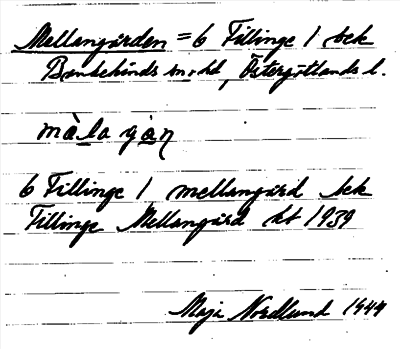 Mellangården = 6 Fillinge 1 bek
Bankekinds sn o hd, Östergötlands l.
mà̲la gà̲ɳ
6 Fillinge 1 mellangård bek
Fillinge Mellangård kt 1939
Maja Nordlund 1944